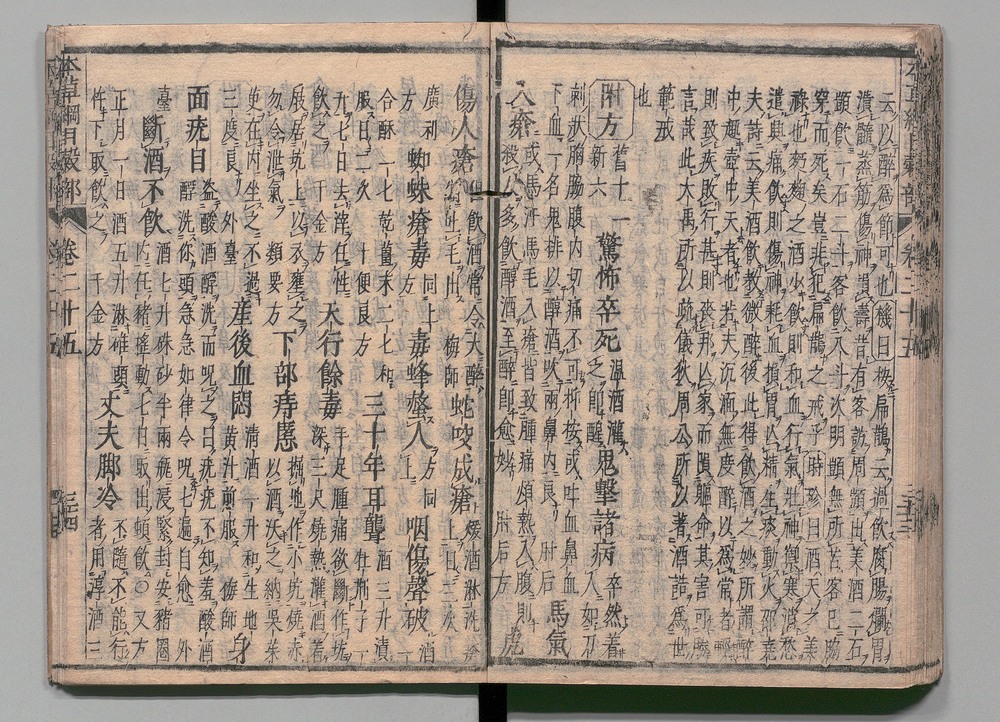 云以醉爲節可也機曰按扁鵲云過飲腐腸爛胃
潰髓蒸筋傷神損壽昔有客訪周顗出美酒二石
顗飲一石二斗客飲八斗次明顗無所苦客已脇
穿而死矣豈非犯扁鵲之戒乎時珍曰酒天之美
祿也麪麴之酒少飲則和血行氣壯神禦寒消愁
遣興痛飲則傷神耗血損胃亡精生痰動火邵堯
夫詩云美酒飲教微醉後此得飲酒之妙所謂醉
中趣壺中天者也若夫沉湎無度醉以爲常者輕
則致疾敗行甚則喪邦亡家而隕軀命其害可勝
言哉此大禹所以疏儀狄周公所以著酒誥爲世
範戒
也
附方舊十一新六驚怖卒死温酒灌之即醒鬼擊諸病卒然着人如刀
刺狀胸脇腹内切痛不可抑按或吐血鼻血
下血一名鬼排以醇酒吹兩鼻内良肘后馬氣
入瘡或馬汗馬毛入瘡皆致腫痛煩熱入腹則
殺人多飲醇酒至醉即愈妙肘后方虎
傷人瘡但飲酒常令大醉當吐毛出梅師蛇咬成瘡煖酒淋洗瘡上日三次
廣利方蜘蛛瘡毒同上方毒蜂螫人方同上咽傷聲破酒一
合酥一匕乾薑末二匕和服日二久千便良方三十年耳聾酒三升漬牡荊子一
升七日去滓任性飲之千金方天行餘毒手足腫痛欲斷作坑深三尺燒熱灌酒着
屐踞坑上以衣壅之勿令泄氣類要方下部痔䘌掘地作小坑燒赤以酒沃之納吳茱
萸在内坐之不過三度良外臺産後血悶清酒一升和生地黄汁煎服梅師身
面疣目盗酸酒酻洗而呪之曰疣疣不知羞酸酒
酻洗你頭急急如律令呪七遍自愈外
臺斷酒不飲酒七升硃砂半兩瓶浸緊封安豬圈
内任豬搖動七日取出頓飲○又方
正月一日酒五升淋碓頭杵下取飲之千金方丈夫脚冷不隨不能行者用淳酒三
卷二十五
三十四